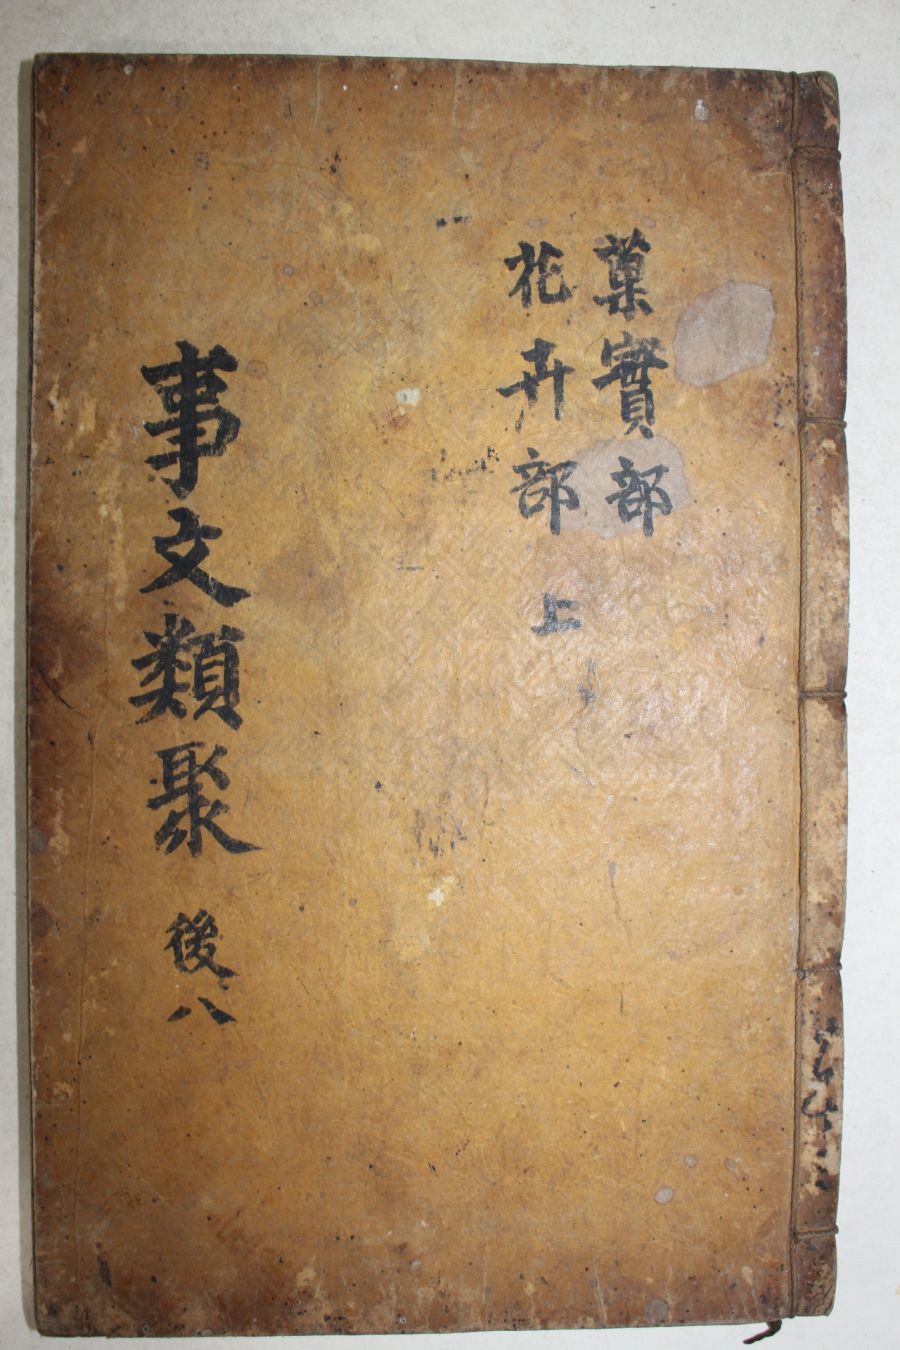 菓實部
花卉部 上
事文類聚 後八